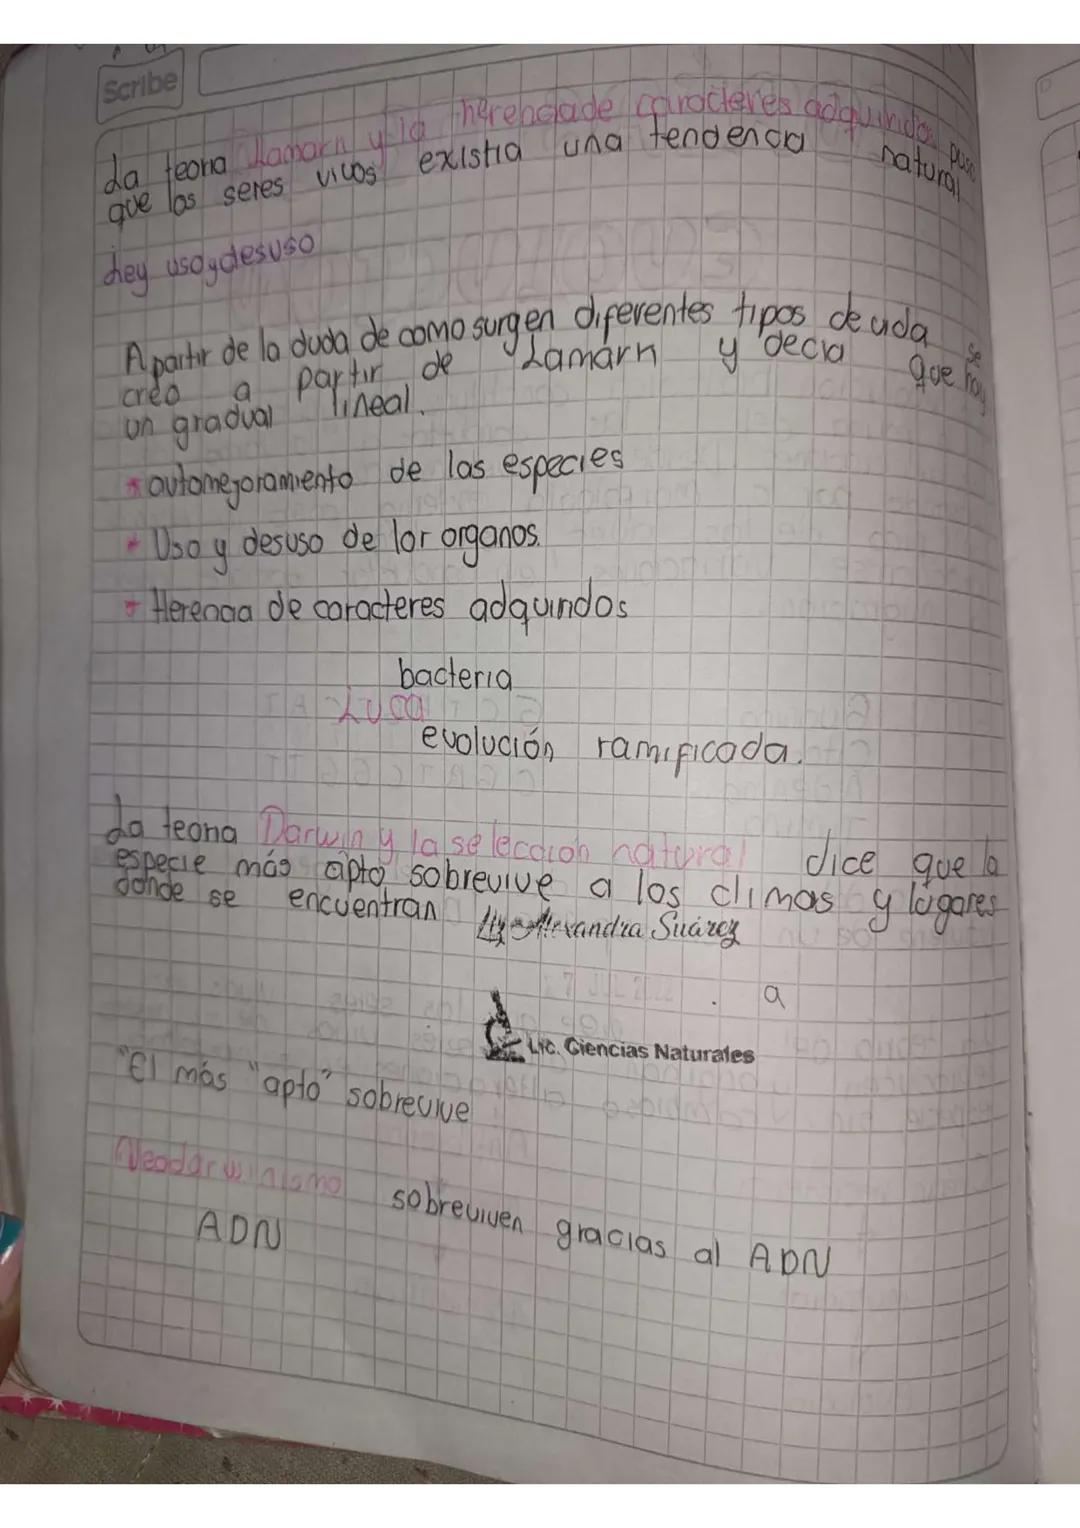 Scribe
La teoria Lamarn y la herenciade caracteres adquiridos puso
que los seres vivos existia una tendencia natural
Ley usoydesuso
A partir de la duda de como surgen diferentes tipos de vida se
creo a partir de Lamarn y decia que hay
un gradual lineal.
* automejoramiento de las especies
* Uso y desuso de lor organos.
* Herencia de caracteres adquiridos
bacteria
Luca
evolución ramificada.
La teoria Darwin y la selección natural dice que la
especie más apto sobrevive a los climas y lugares
donde se encuentran
Alexandra Suárez
a
Lic. Ciencias Naturales
"El más "apto" sobrevive
Neodarwinismo sobreviven gracias al ADN
ADN